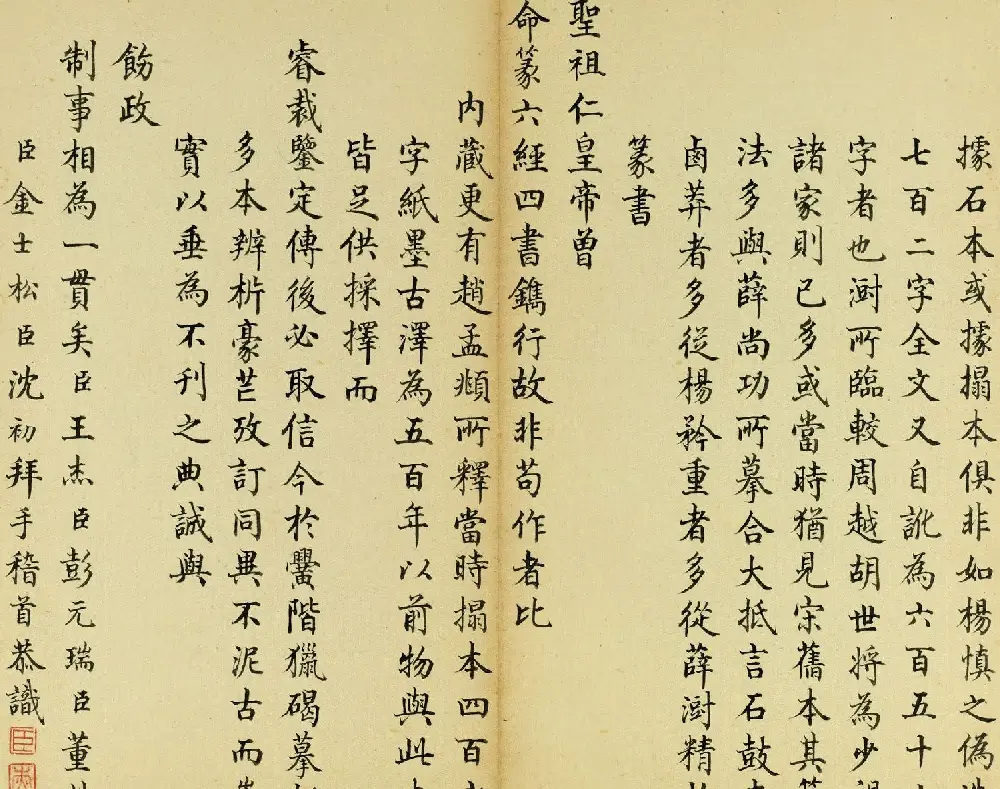 據石本或據搨本俱非如楊慎之偽
七百二字全文又自訛為六百五十
字者也澍所臨較周越胡世将為少
諸家則已多或當時猶見宋舊本其
法多與薛尚功所摹合大抵言石鼓
鹵莽者多從楊矜重者多從薛澍精
篆書
聖祖仁皇帝曾
命篆六經四書鐫行故非苟作者比
内藏更有趙孟頫所釋當時搨本四百
字紙墨古澤為五百年以前物與此
皆足供採擇而
睿裁鑒定傳後必取信今於黌階獵碣摹
多本辨析豪芒攷訂同異不泥古而
實以垂為不刊之典誠與
飭政
制事相為一貫矣臣王杰臣彭元瑞臣董
臣金士松臣沈初拜手稽首恭識
臣